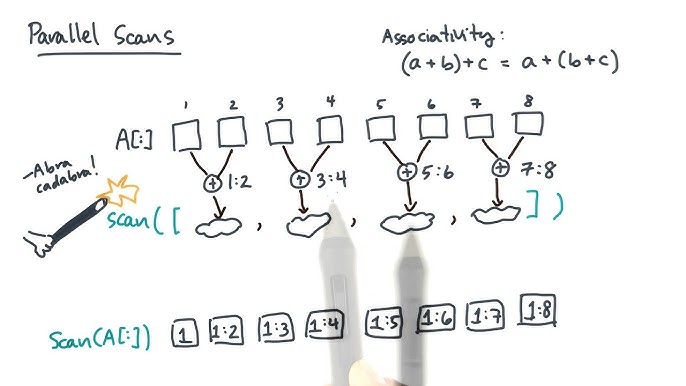 Parallel Scans
Associativity:
(a+b)+c = a+(b+c)
1 2 3 4 5 6 7 8
A[:]
-Abra
cadabra!
+ 1:2 + 3:4 + 5:6 + 7:8
scan([ , , , ])
Scan(A[:]) 1 1:2 1:3 1:4 1:5 1:6 1:7 1:8